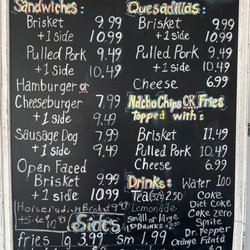 Sandwiches:
Brisket 9.99
+1 side 10.99
Pulled Pork 9.49
+1 side 10.49
Hamburger or
Cheeseburger 7.99
+1 side 9.49
Sausage Dog 7.99
+1 side 9.49
Open Faced
Brisket 9.99
+1 side 10.99
Sides
fries g 3.99 sm 1.99
Quesadillas:
Brisket 9.99
+1 side 10.99
Pulled Pork 9.49
+1 side 10.49
Cheese 6.99
Nacho Chips OR Fries
Topped with:
Brisket 11.49
Pulled Pork 10.49
Cheese 6.99
Drinks: Water 1.00
Tea Coke
Lemonade Diet Coke
Small or Large Coke Zero
Sprite
Dr. Pepper
Orange Fanta